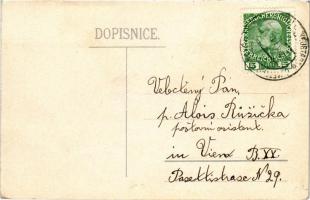 DOPISNICE.
Velectěný Pán,
p. Alois Růžička
poštovní asistent.
in Vien B. XX.
Pasettistrasse № 29.